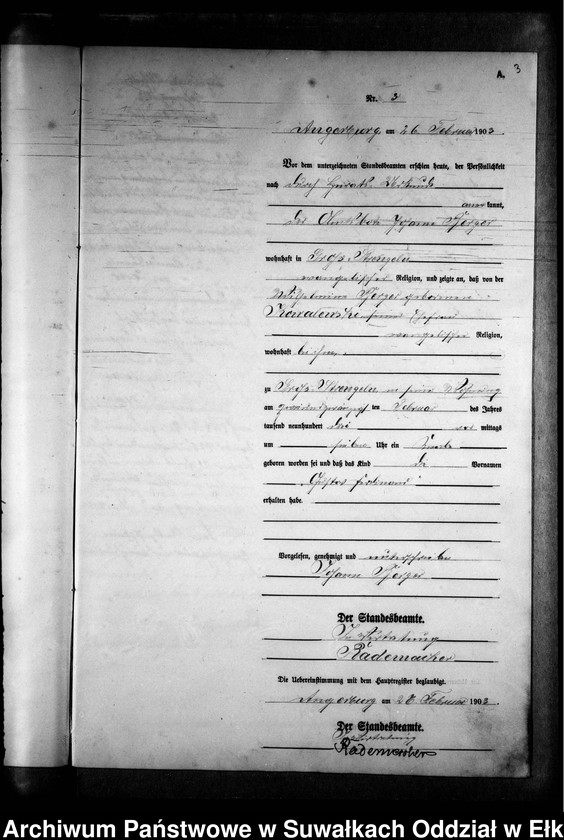 3
A.
Nr. 3
Angerburg am 26 Februar 1903
Vor dem unterzeichneten Standesbeamten erschien heute, der Persönlichkeit
nach durch Heirats Urkunde
anerkannt,
der Johann
wohnhaft in Groß Strengeln
evangelischer Religion, und zeigte an, daß von der
Wilhelmina geborenen
Kowalewski seine Ehefrau
evangelischer Religion,
wohnhaft bei ihm
zu Groß Strengeln in seine Wohnung
am ten Februar des Jahres
tausend neunhundert drei vor mittags
um sieben Uhr ein Knabe
geboren worden sei und daß das Kind die Vornamen
Gustav Ferdinand
erhalten habe.
Vorgelesen, genehmigt und unterschrieben
Johann
Der Standesbeamte.
In Vertretung
Rademacher
Die Uebereinstimmung mit dem Hauptregister beglaubigt.
Angerburg am 26 Februar 1903
Der Standesbeamte.
In Vertretung
Rademacher
Archiwum Państwowe w Suwałkach Oddział w Ełk